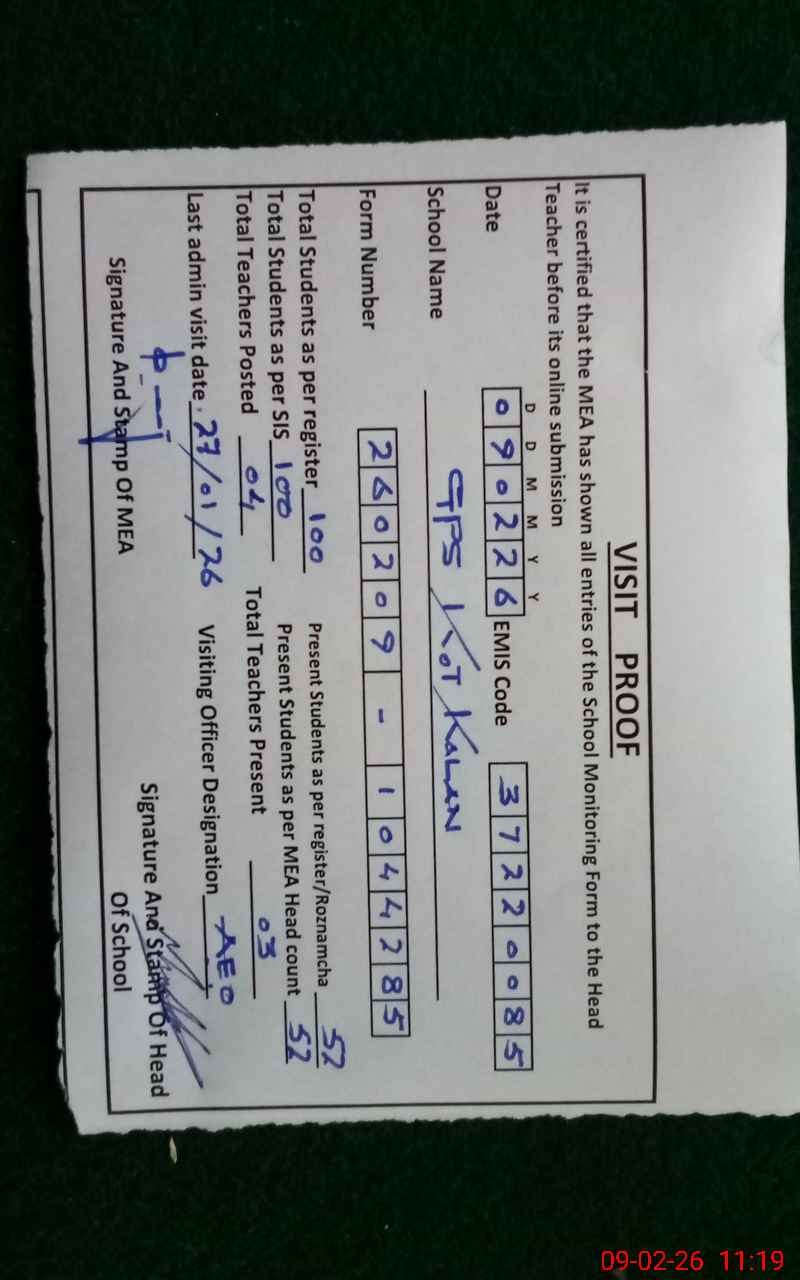 VISIT PROOF
It is certified that the MEA has shown all entries of the School Monitoring Form to the Head
Teacher before its online submission
D D M M Y Y
Date 0 9 0 2 2 6 EMIS Code 3 7 2 2 0 0 8 5
School Name GPS KOT KALAN
Form Number 2 6 0 2 0 9 - 1 0 4 4 2 8 5
Total Students as per register 100 Present Students as per register/Roznamcha 52
Total Students as per SIS 100 Present Students as per MEA Head count 52
Total Teachers Posted 04 Total Teachers Present 03
Last admin visit date 27/01/26 Visiting Officer Designation AEO
Signature And Stamp Of MEA Signature And Stamp Of Head
Of School
09-02-26 11:19